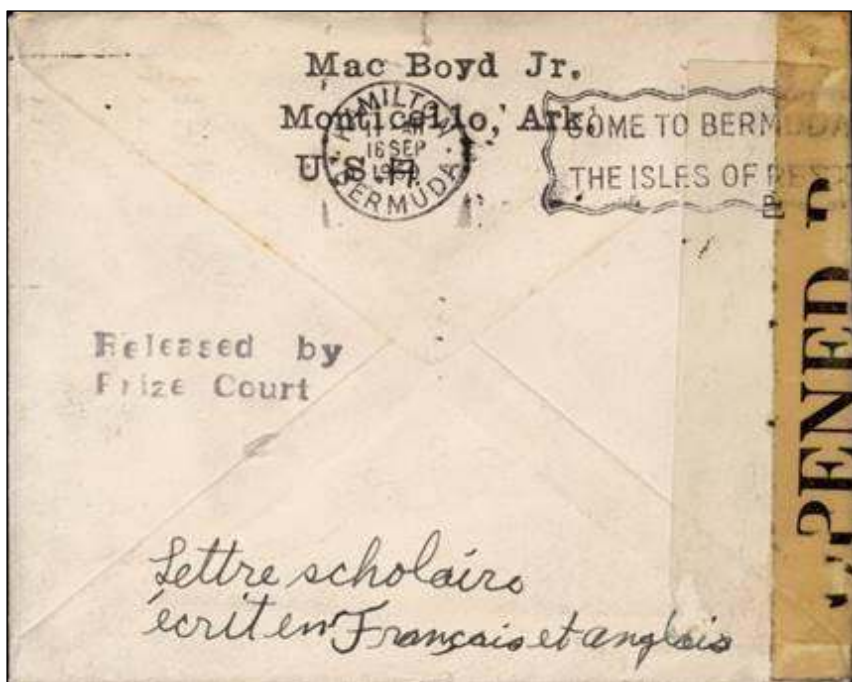 Mac Boyd Jr.
Monticello, Ark.
U.S.A.
HAMILTON
BERMUDA
16 SEP
COME TO BERMUDA
THE ISLES OF REST
Released by
Prize Court
PENED
Lettre scholaire
écrit en Français et anglais